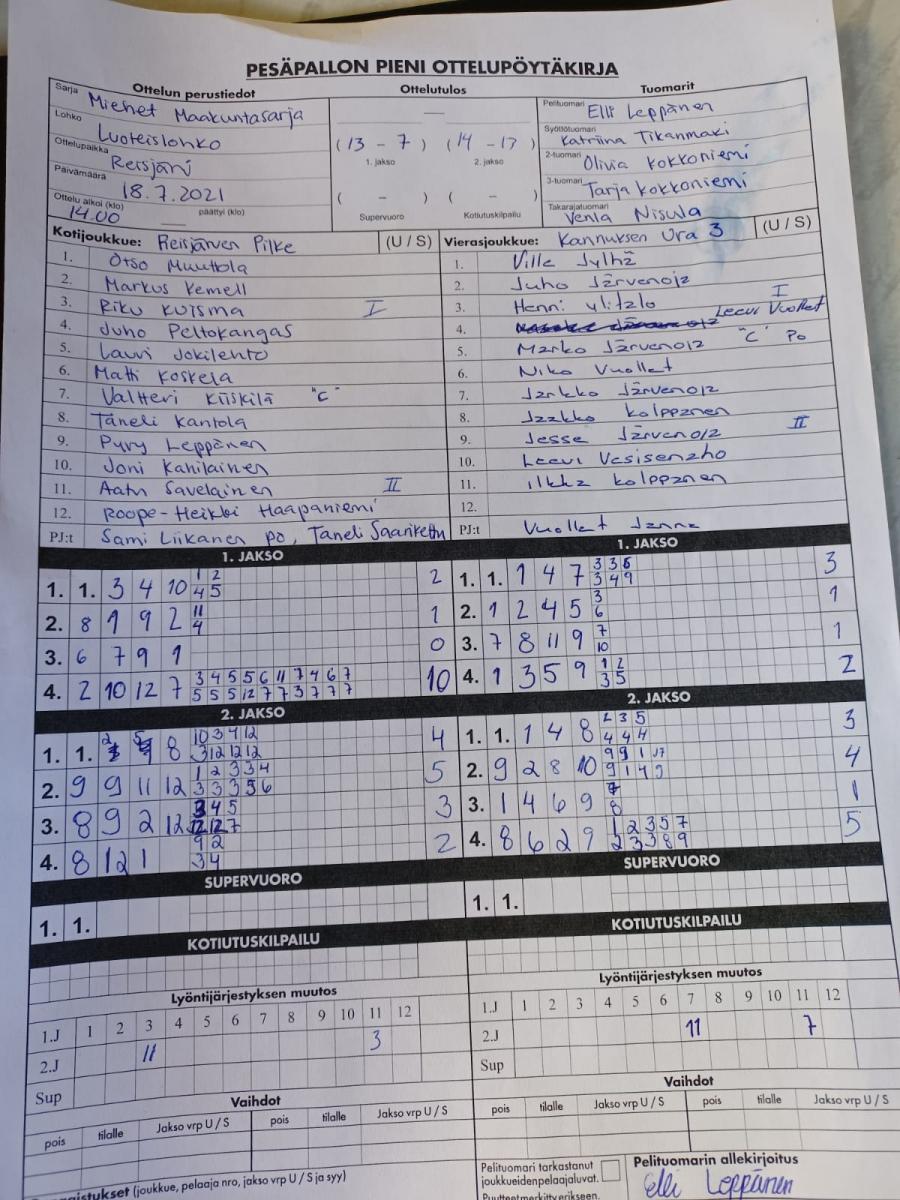 PESÄPALLON PIENI OTTELUPÖYTÄKIRJA
Ottelun perustiedot Ottelutulos Tuomarit
Sarja Miehet Maakuntasarja
Lohko Luoteislohko
Ottelupaikka Reisjäni
Päivämäärä 18.7.2021
Ottelu alkoi (klo) 14.00 päättyi (klo)
(13 - 7) (14 - 13)
1. jakso 2. jakso
( - ) ( - )
Supervuoro Kotiutuskilpailu
Pelituomari Elli Leppänen
Syöttötuomari Katriina Tikanmäki
2-tuomari Olivia Kokkoniemi
3-tuomari Tarja Kokkoniemi
Takarajatuomari Venla Nisula
Kotijoukkue: Reisjärven Pilke (U / S)
1. Otso Muuttola
2. Markus Kemell
3. Riku Kuisma I
4. Juho Peltokangas
5. Lauri Jokilehto
6. Matti Koskela
7. Valtteri Kiiskilä "C"
8. Taneli Kantola
9. Pyry Leppänen
10. Joni Kahilainen
11. Aatu Savelainen II
12. Roope-Heikki Haapaniemi
PJ:t Sami Liikanen po, Taneli
Vierasjoukkue: Kannuksen Ura 3 (U / S)
1. Ville Jylhä
2. Juho Järvenoja
3. Henri Ylitalo I
4. Leevi Vuollet
5. Marko Järvenoja "C" Po
6. Niko Vuollet
7. Jarkko Järvenoja
8. Jaakko Kolppanen
9. Jesse Järvenoja II
10. Leevi Vesisenaho
11. Ilkka Kolppanen
12.
PJ:t Vuollet Janne
1. JAKSO
1. 1. 3 4 10 1 2 2
4 5
2. 8 1 9 2 11 1
4
3. 6 7 9 1 0
4. 2 10 12 7 3 4 5 5 6 11 7 4 6 7 10
5 5 5 12 7 7 3 7 7 7
1. JAKSO
1. 1. 1 4 7 3 3 6 3
3 4 9
2. 1 2 4 5 3 1
6
3. 7 8 11 9 7 1
10
4. 1 3 5 9 1 2 2
3 5
2. JAKSO
1. 1. 2 5 8 10 3 4 12 4
3 12 12 12
2. 9 9 11 12 1 2 3 3 4 5
3 3 3 5 6
3. 8 9 2 12 3 4 5 3
12 12 7
4. 8 12 1 9 2 2
3 4
2. JAKSO
1. 1. 1 4 8 2 3 5 3
4 4 4
2. 9 2 8 10 9 9 1 4
9 1 4 9
3. 1 4 6 9 7 1
8
4. 8 6 2 9 1 2 3 5 7 5
2 3 3 8 9
SUPERVUORO
1. 1.
SUPERVUORO
1. 1.
KOTIUTUSKILPAILU
KOTIUTUSKILPAILU
Lyöntijärjestyksen muutos
1.J 1 2 3 4 5 6 7 8 9 10 11 12
2.J 11 3
Sup
Lyöntijärjestyksen muutos
1.J 1 2 3 4 5 6 7 8 9 10 11 12
2.J 11 7
Sup
Vaihdot
pois tilalle Jakso vrp U / S pois tilalle Jakso vrp U / S
Vaihdot
pois tilalle Jakso vrp U / S pois tilalle Jakso vrp U / S
(joukkue, pelaaja nro, jakso vrp U / S ja syy)
Pelituomari tarkastanut
joukkueidenpelaajaluvat.
Puutteetmerkittyerikseen.
Pelituomarin allekirjoitus
Elli Leppänen